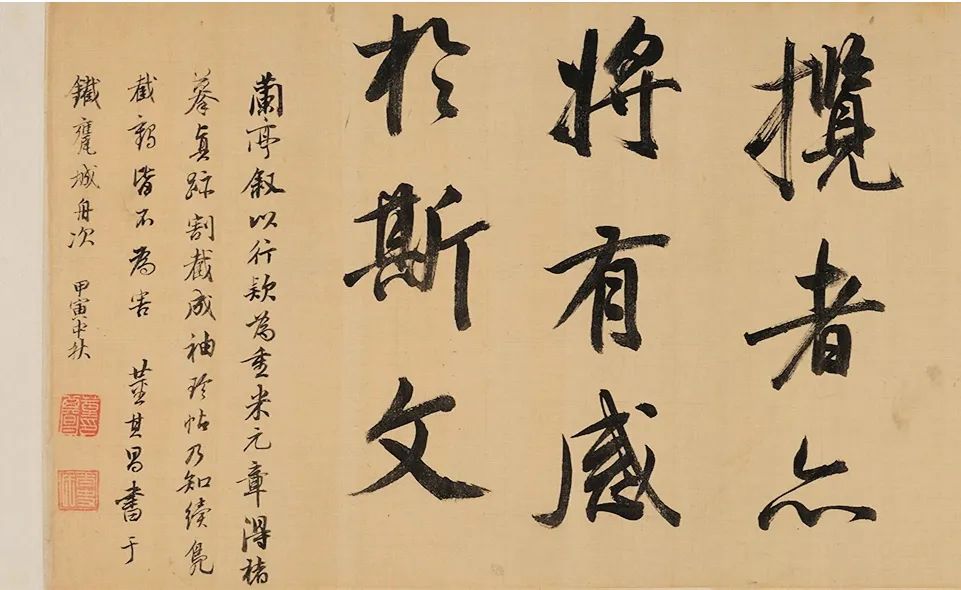 攬者亦
將有感
於斯文
蘭亭叙以行款為重米元章得褚
摹真跡割截成袖珍帖乃知續鳧
截鶴皆不為害 董其昌書于
鐵甕城舟次 甲寅中秋